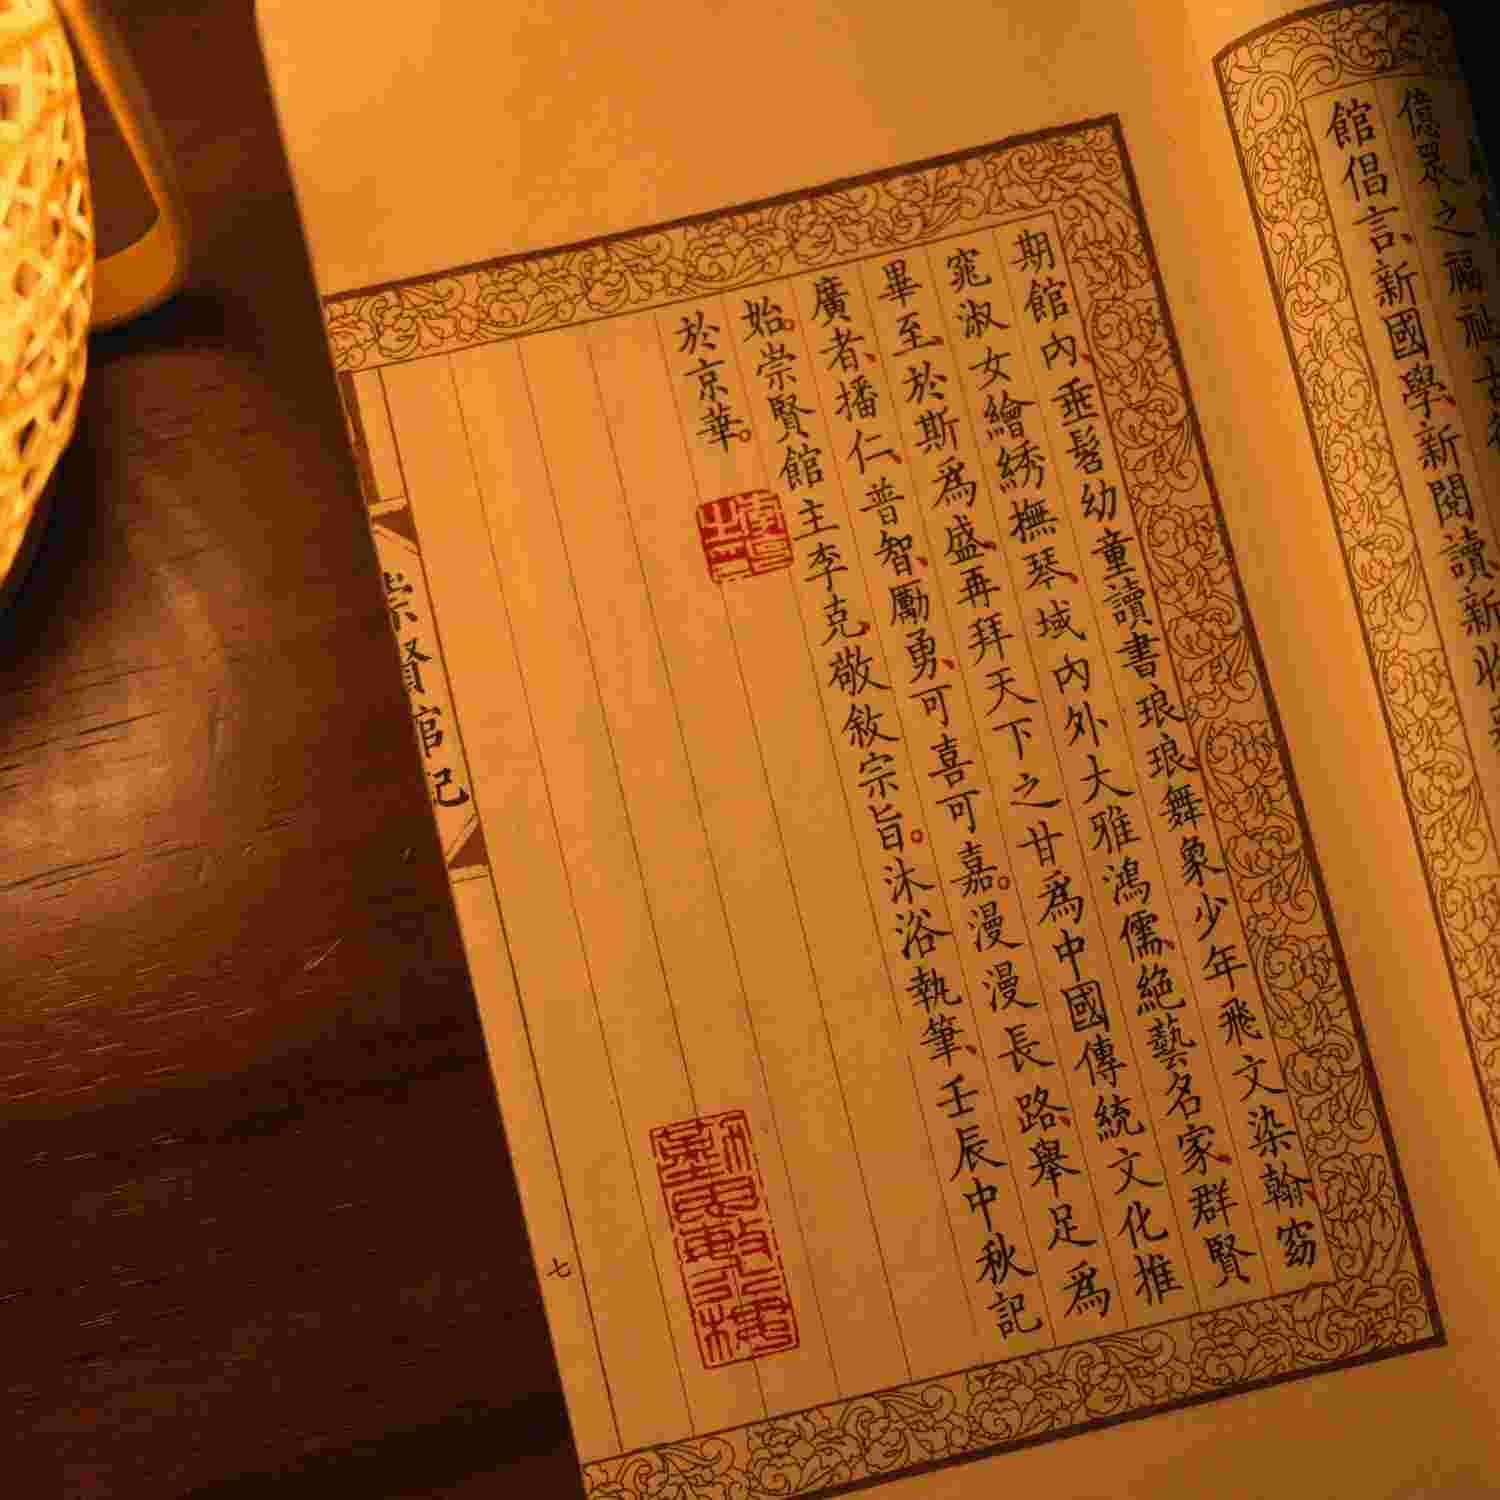 億眾之福祉
館倡言、新國學、新閱讀、新收
期館內、垂髫幼童讀書琅琅、舞象少年飛文染翰、窈
窕淑女繪綉撫琴、域內外大雅鴻儒、絕藝名家、群賢
畢至、於斯爲盛、再拜天下之甘爲中國傳統文化推
廣者、播仁、普智、勵勇、可喜可嘉。漫漫長路、舉足爲
始。崇賢館主李克、敬敘宗旨。沐浴執筆、壬辰中秋記
於京華。
崇賢館記
七